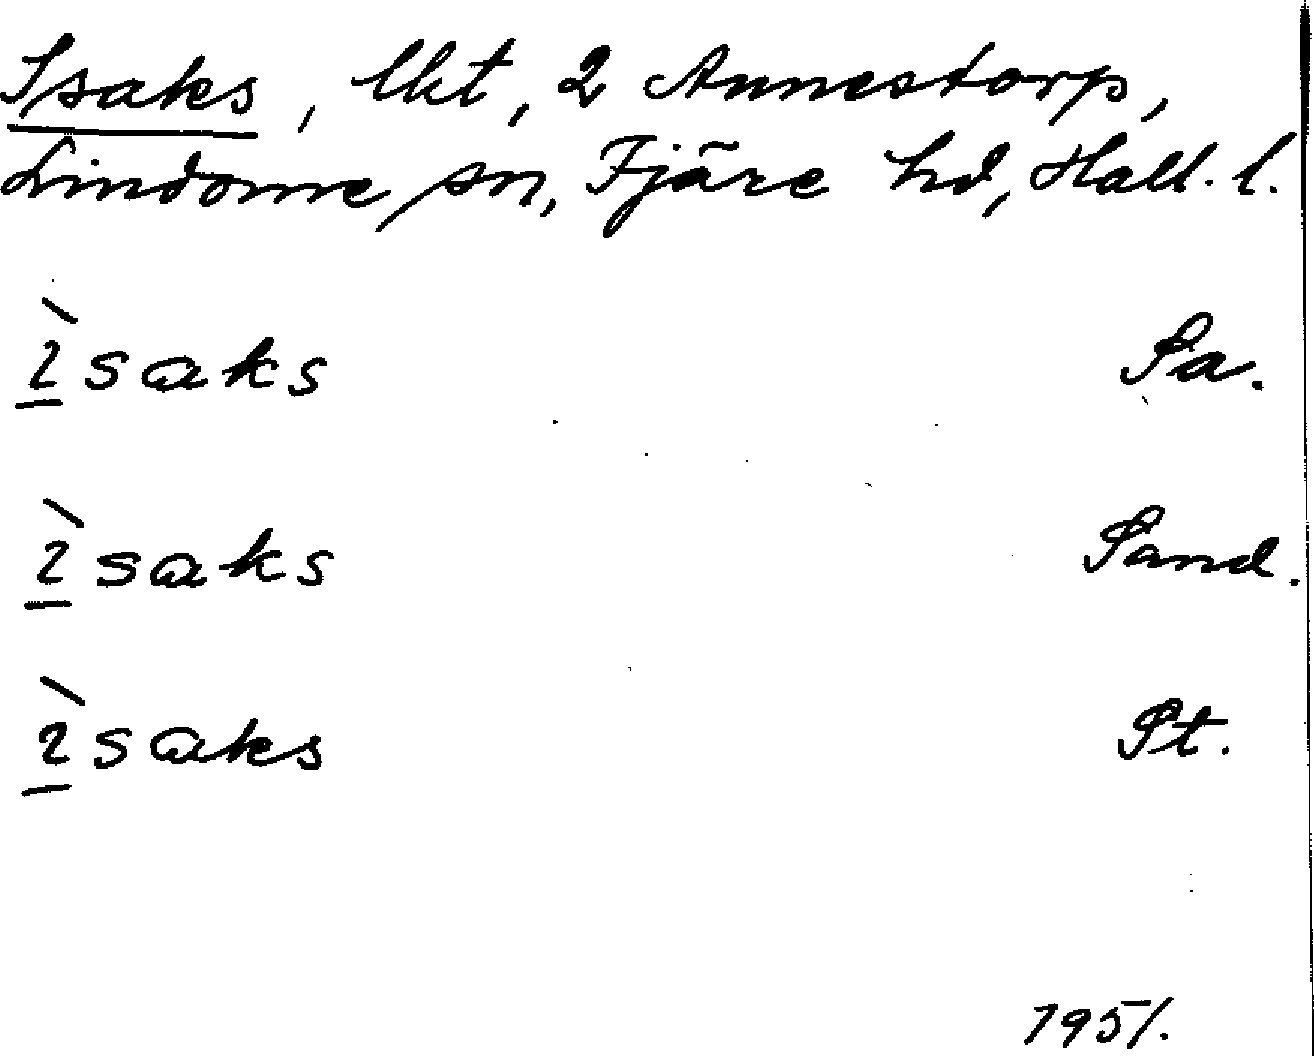 Isaks, lkt, 2 Annestorp,
Lindome sn, Fjäre hd, Hall. l.
ı̀saks Sa.
ı̀saks Sand.
ı̀saks St.
1951.